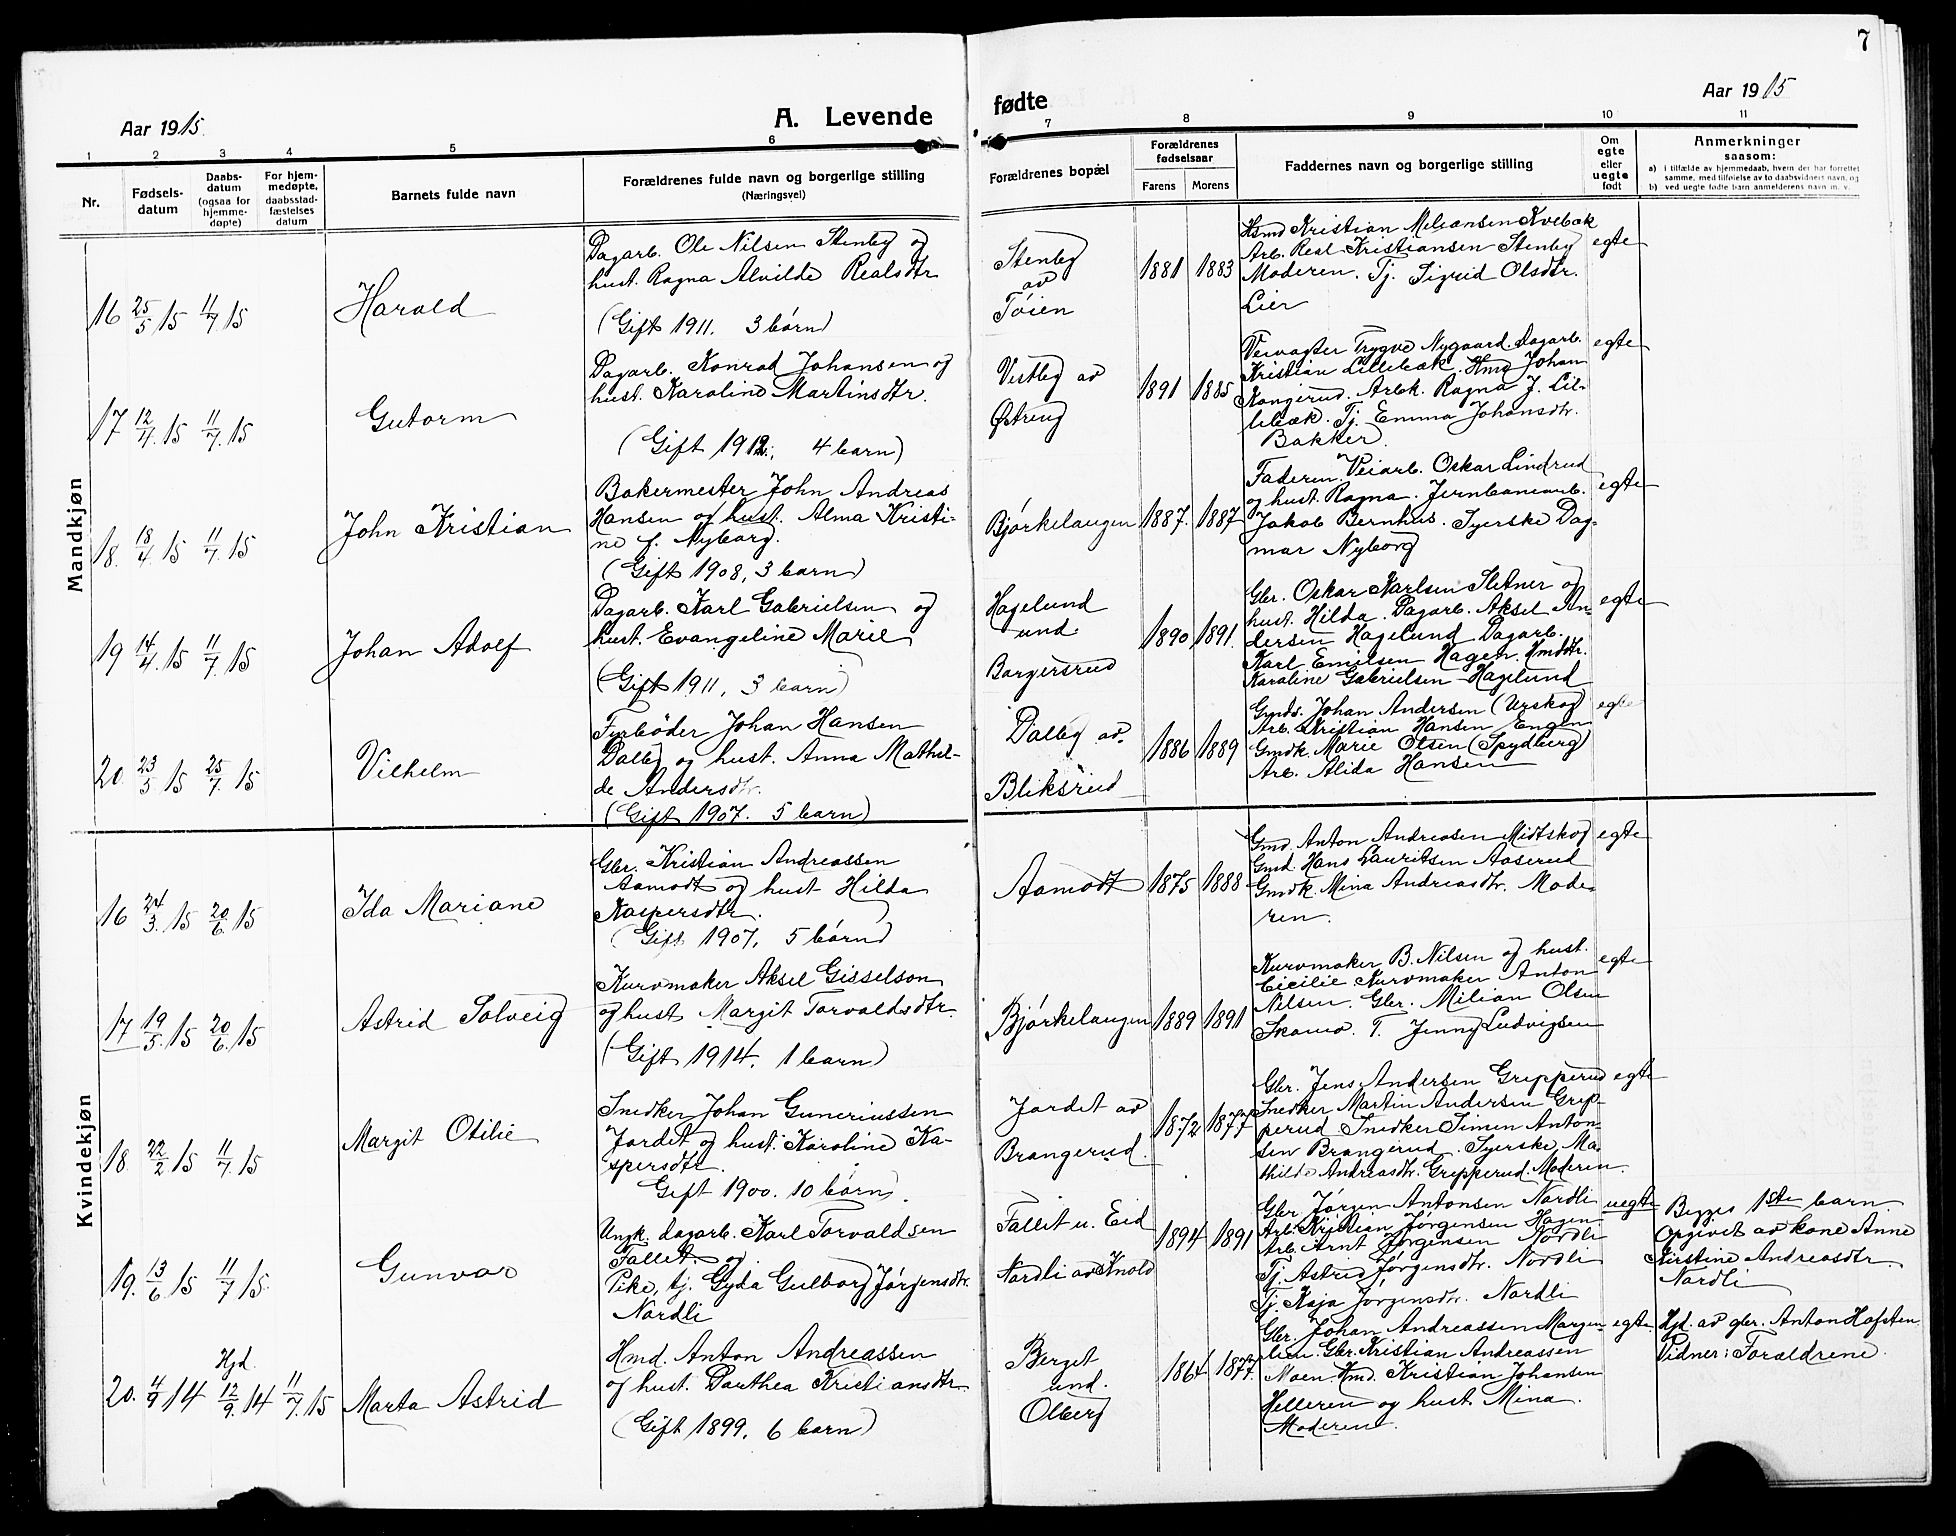 7
Aar 1915.
A. Levende
fødte
Aar 1915
1 2 3 4 5 6 7 8 9 10 11
Nr.
Fødsels-
datum
Daabs-
datum
(ogsaa for
hjemme-
døpte)
For hjem-
medøpte,
daabsstad-
fæstelses
datum
Barnets fulde navn
Forældrenes fulde navn og borgerlige stilling
(Næringsvei)
Forældrenes bopæl
Forældrenes
fødselsaar
Farens Morens
Faddernes navn og borgerlige stilling
Om
egte
eller
uegte
født
Anmerkninger
saasom:
a) i tilfælde av hjemmedaab, hvem der har forrettet
samme, med tilføielse av to daabsvidners navn, og
b) ved uegte fødte barn anmelderens navn m. v.
Mandkjøn
16 25/5 15 11/7 15
Harald
Dagarb. Ole Nilsen Stenby og
hust. Ragna Alvilde Realsdtr
(Gift 1911. 3 børn)
Stenby
av
Tøien
1881 1883
Hsmd Kristian Mileansen Kvebæk
Arb. Real Kristiansen Stenby
Moderen. Tj. Sigrid Olsdtr.
Lier
egte
17 12/4 15 11/7 15
Gutorm
Dagarb. Konrad Johansen og
hust. Karoline Martinsdtr.
(Gift 1912; 4 barn)
Vestby av
Østreng
1891 1885
Veivagter Trygve Nygaard. Dagarb.
Kristian Lillebæk. Hmd Johan
Kongerud. Arbk. Ragna J. Lil-
lebæk. Tj. Emma Johansdtr.
Bakker.
egte
18. 18/4 15 11/7 15
John Kristian
Bakermester John Andreas
Hansen og hust. Alma Kristi-
ne f. Nyborg.
(Gift 1908, 3 barn)
Bjørkelangen
1887. 1887
Faderen. Veiarb. Oskar Lindrud
og hust. Ragna. Jernbanearb.
Jakob Bernhus. Syerske Dag-
mar Nyborg
egte
19 14/4 15 11/7 15
Johan Adolf
Dagarb. Karl Gabrielsen og
hust. Evangeline Marie
(Gift 1911, 3 barn)
Hagelund
und.
Borgersrud
1890 1891.
Gbr. Oskar Karlsen Sletner og
hust. Hilda. Dagarb. Aksel An-
dersen Hagelund Dagarb.
Karl Emilsen Hagen. Hmdtr.
Karoline Gabrielsen Hagelund
egte
20. 23/5 15 25/7 15
Vilhelm
Fyrbøder Johan Hansen
Dalby og hust. Anna Mathil-
de Andersdtr.
(Gift 1907. 5 barn)
Dalby av
Bliksrud
1886 1889
Gmds. Johan Andersen (Urskog)
Arb. Kristian Hansen Engen
Gmdk. Marie Olsen (Spydberg)
Arb. Alida Hansen
egte
Kvindekjøn
16 24/3 15 20/6 15
Ida Mariane
Gbr. Kristian Andreassen
Aamodt og hust Hilda
Kaspersdtr.
(Gift 1907, 5 børn)
Aamodt
1875 1888
Gmd. Anton Andreasen Midtskog
Gmd. Hans Lauritsen Aaserud
Gmdk Mina Andreasdtr. Mode-
ren.
egte
17 19/5 15 20/6 15
Astrid Solveig
Kurvmaker Aksel Gisselson
og hust Margit Torvaldsdtr.
(Gift 1914. 1 barn)
Bjørkelangen
1889 1891
Kurvmaker B. Nilsen og hust.
Cicilie Kurvmaker Anton
Nilsen. Gbr. Milian Olsen
Skamo. T. Jenny Ludvigsen
egte
18. 22/2 15 11/7 15
Margit Otilie
Snedker Johan Guneriussen
Jordet og hust. Karoline Ka-
spersdtr.
Gift 1900. 10 børn.
Jordet av
Brangerud.
1872 1877
Gbr. Jens Andersen Gripperud
Snedker Martin Andersen Grip-
perud. Snedker Simen Anton-
sen Brangerud. Syerske Ma-
thilde Andreasdtr. Gripperud. Moderen.
egte
19. 13/6 15 11/7 15.
Gunvor
Ungk. dagarb. Karl Torvaldsen
Fallet og
Pike, tj. Gyda Gulborg Jørgensdtr.
Nordli
Fallet u. Eid
Nordli av Knold
1894 1891
Gbr Jørgen Antonsen Nordli
Arb. Kristian Jørgensen Hagen-
Arb. Arnt Jørgensen Nordli
Tj. Astrid Jørgensdtr. Nordli
Tj. Kaja Jørgensdtr. Nordli
uegte
Begges 1ste barn.
Opgivet av kone Anne
Kirstine Andreasdtr
Nordli
20. 4/9 14 Hjd. 12/9. 14 11/7. 15
Marta Astrid
Hmd. Anton Andreassen
og hust. Dorthea Kristiansdtr
(Gift 1899. 6 barn)
Berget
und.
Olberg
1864 1877.
Gbr. Johan Andreassen Morgen-
lien. Gbr. Kristian Andreassen
Moen. Hmd. Kristian Johansen
Helleren og hust Mina.
Moderen.
egte.
Hjd. av gbr. Anton Hofsten
Vidner: Forældrene.